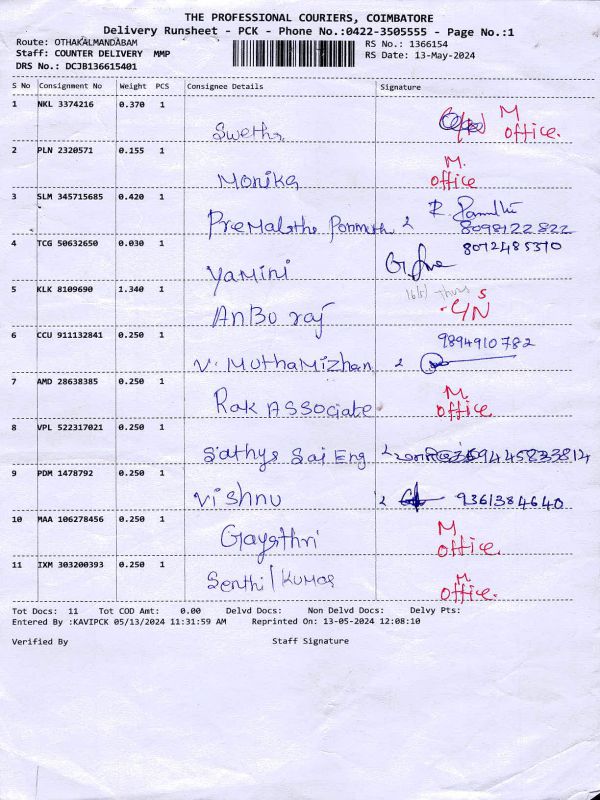 THE PROFESSIONAL COURIERS, COIMBATORE
Delivery Runsheet - PCK - Phone No.:0422-3505555 - Page No.:1
Route: OTHAKALMANDABAM
RS No.: 1366154
Staff: COUNTER DELIVERY MMP
RS Date: 13-May-2024
DRS No.: DCJB136615401
S No Consignment No Weight PCS Consignee Details Signature
1 NKL 3374216 0.370 1
Swetha M office.
2 PLN 2320571 0.155 1 M.
Monika office
3 SLM 345715685 0.420 1
Premalatha 8098122822
4 TCG 50632650 0.030 1 8072485310
Yamini
5 KLK 8109690 1.340 1 16/5/ Thurs S
Anbu raj C/N
6 CCU 911132841 0.250 1 9894910782
V. Muthamizhan
7 AMD 28638385 0.250 1 M.
Rak Associate office.
8 VPL 522317021 0.250 1
Sathya Sai Eng
9 PDM 1478792 0.250 1
Vishnu 9361384640
10 MAA 106278456 0.250 1 M
Gayathri office.
11 IXM 303200393 0.250 1 M.
Senthil Kumar office.
Tot Docs: 11 Tot COD Amt: 0.00 Delvd Docs: Non Delvd Docs: Delvy Pts:
Entered By :KAVIPCK 05/13/2024 11:31:59 AM Reprinted On: 13-05-2024 12:08:10
Verified By Staff Signature